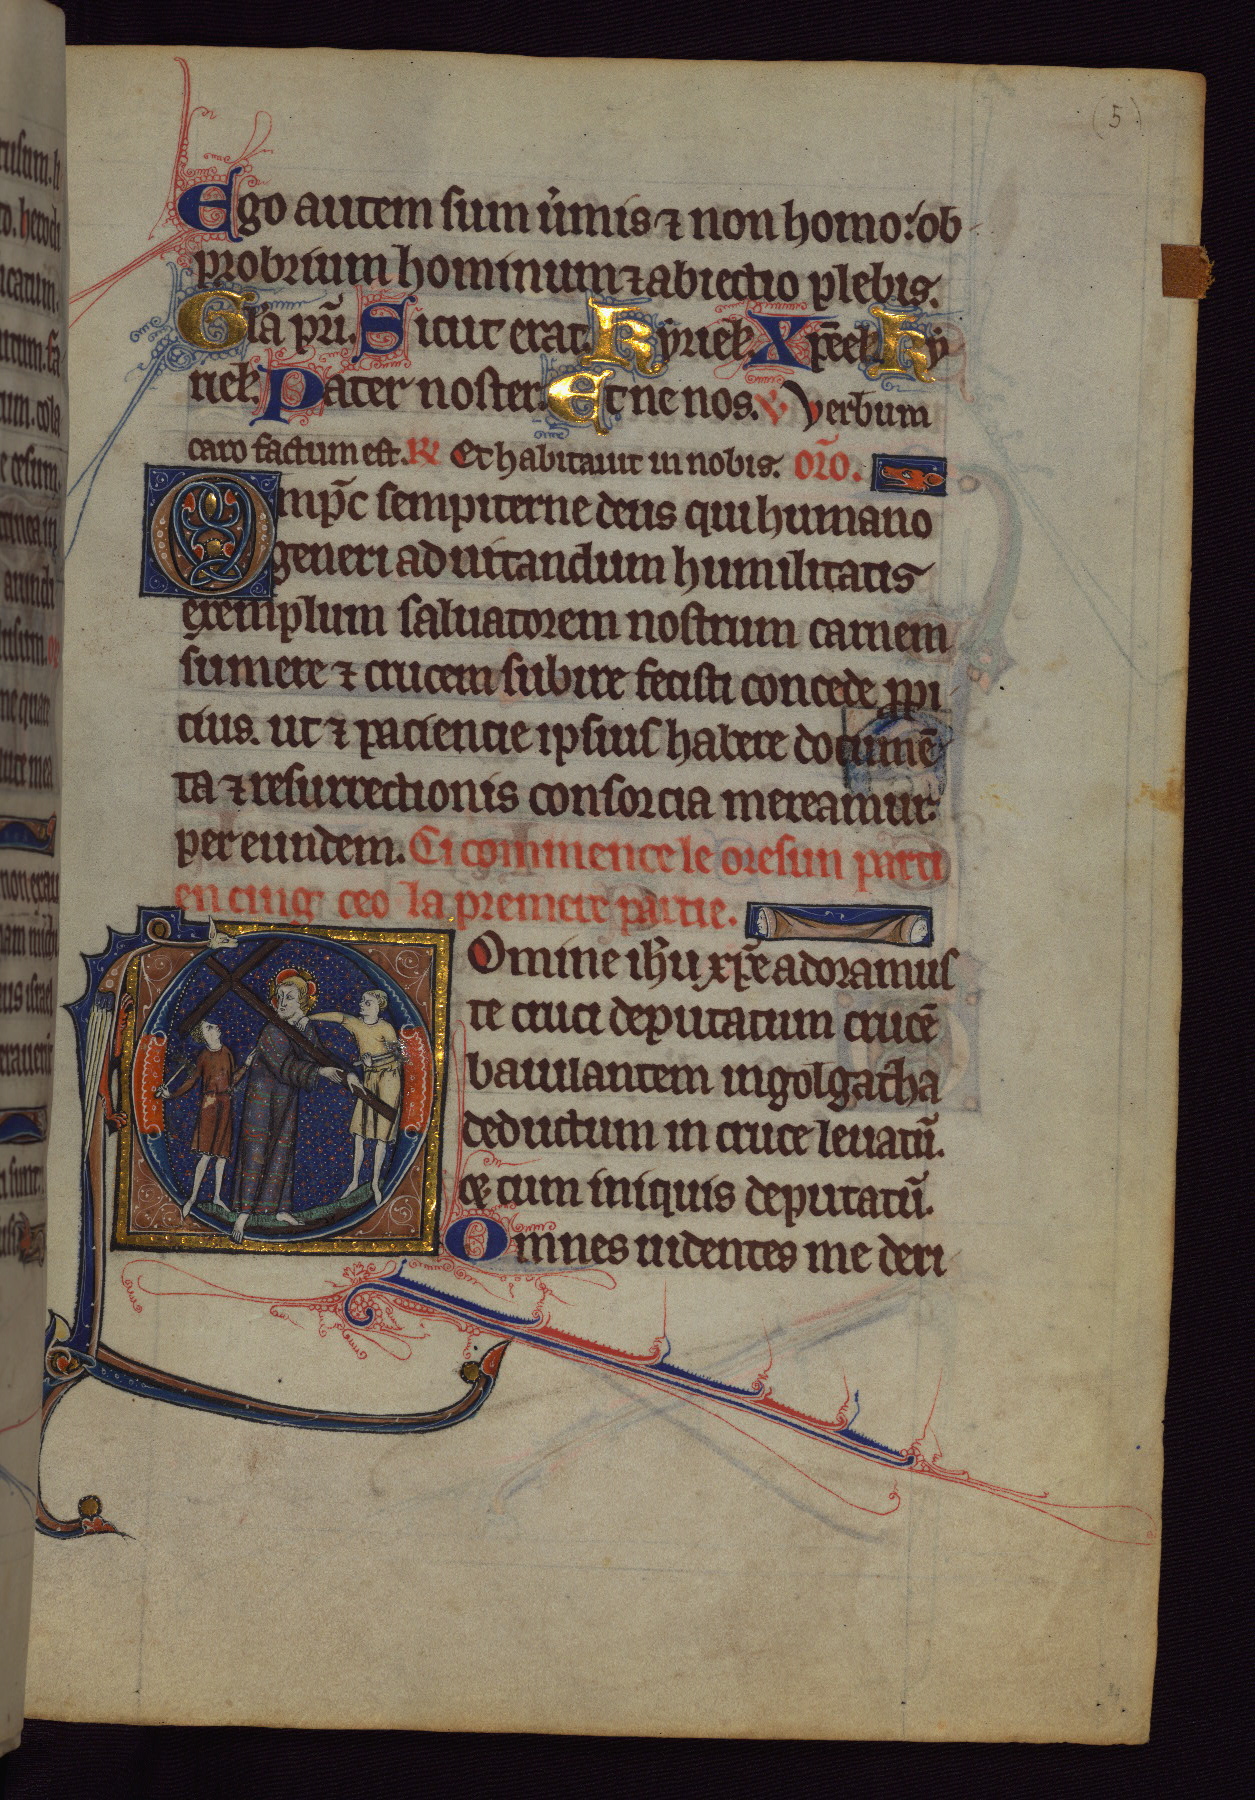 (5)
Ego autem sum u̓mis ⁊ non homo: ob
probrium hominum ⁊ abiectio plebis.
Gl̃a pr̃i. Sicut erat. Kyriel̃. Xp̃eel̃. Ky
riel̃. Pater noster. Et ne nos. ℣ Verbum
caro factum est. ℟ Et habitauit in nobis. or̃o.
Omp̃c sempiterne deus qui humano
generi ad uitandum humilitatis
exemplum saluatorem nostrum carnem
sumere ⁊ crucem subire fecisti concede ꝓpi
cius. ut ⁊ paciencie ipsius habere documẽ
ta ⁊ resurrectionis consorcia mereamur.
per eundem. Ci commence le oresun parti
en cinq ceo la premere partie.
Domine ih̃u xp̃e adoramus
te cruci deputatum crucẽ
baiulantem in golgatha
deductum in cruce leuatũ.
cum iniquis deputatũ.
Omnes uidentes me deri